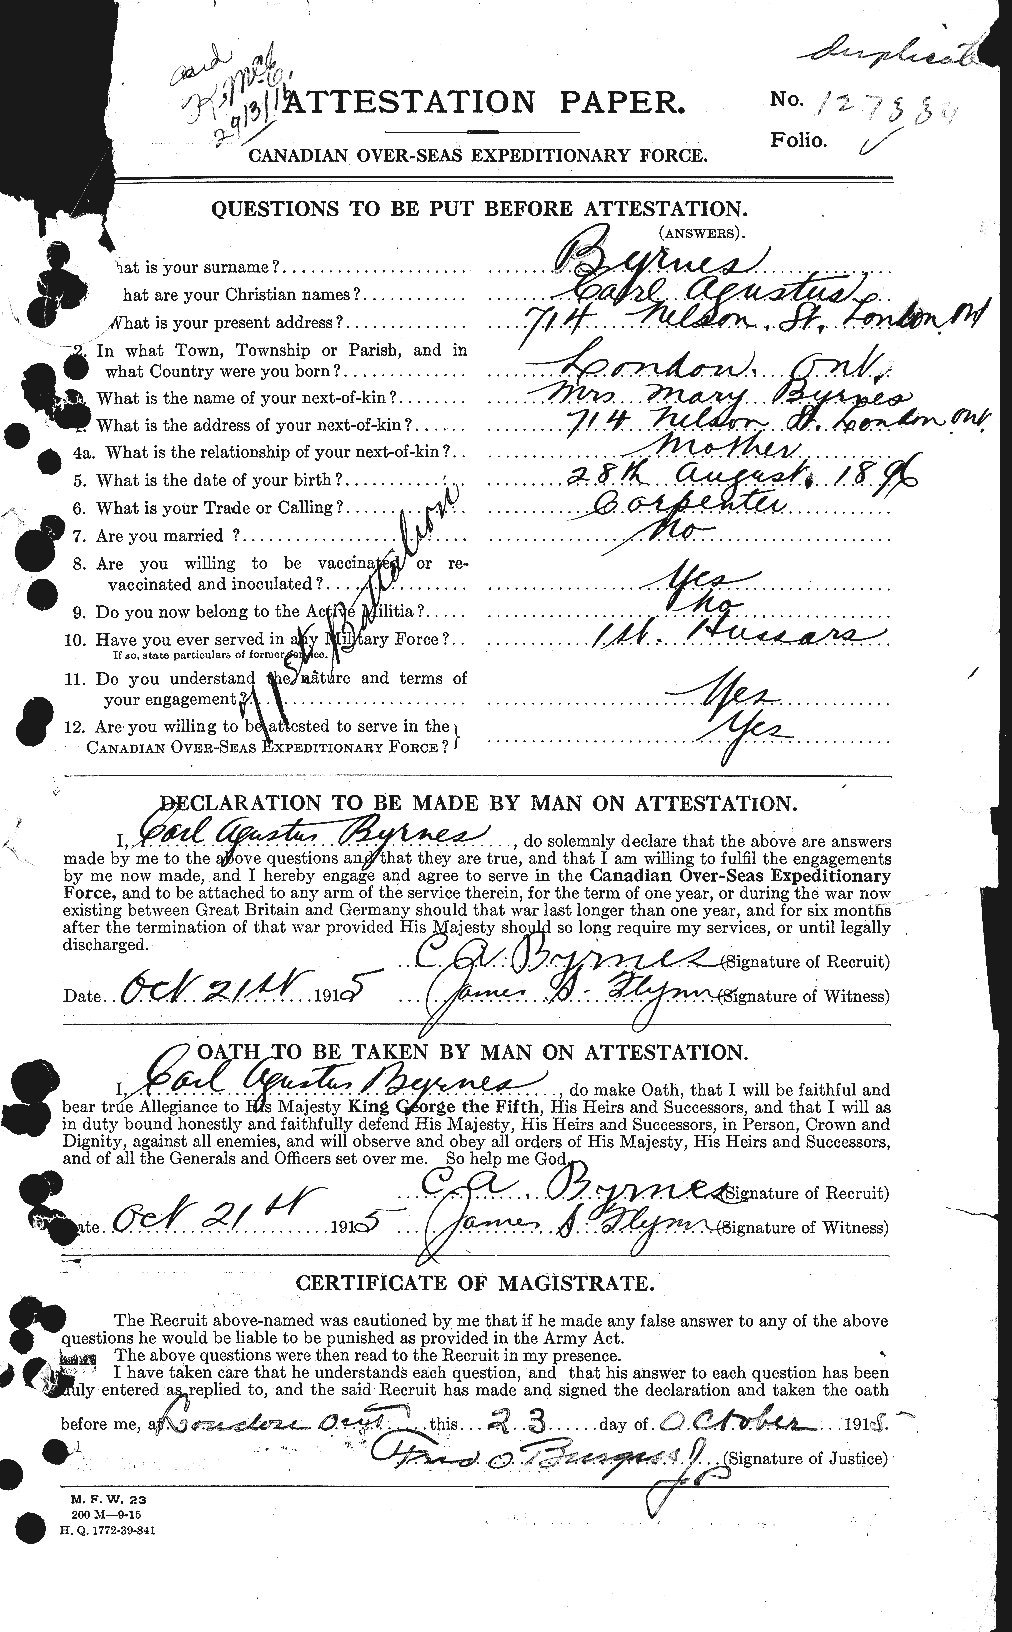 duplicate
card
K. McC.
29/3/16
ATTESTATION PAPER.
No. 127334
Folio.
CANADIAN OVER-SEAS EXPEDITIONARY FORCE.
QUESTIONS TO BE PUT BEFORE ATTESTATION.
(ANSWERS).
hat is your surname? Byrnes
hat are your Christian names? Carl Agustus
What is your present address? 714 Nelson. St. London Ont
2. In what Town, Township or Parish, and in
what Country were you born? London. Ont.
What is the name of your next-of-kin? Mrs Mary Byrnes
What is the address of your next-of-kin? 714 Nelson St. London Ont.
4a. What is the relationship of your next-of-kin? Mother
5. What is the date of your birth? 28th August. 1896
6. What is your Trade or Calling? Carpenter
7. Are you married? No
8. Are you willing to be vaccinated or re-
vaccinated and inoculated? Yes
9. Do you now belong to the Active Militia? No
10. Have you ever served in any Military Force? 1st. Hussars
If so, state particulars of former service.
11. Do you understand the nature and terms of
your engagement? Yes
12. Are you willing to be attested to serve in the
CANADIAN OVER-SEAS EXPEDITIONARY FORCE? Yes
71st Battalion
DECLARATION TO BE MADE BY MAN ON ATTESTATION.
I, Carl Agustus Byrnes, do solemnly declare that the above are answers
made by me to the above questions and that they are true, and that I am willing to fulfil the engagements
by me now made, and I hereby engage and agree to serve in the Canadian Over-Seas Expeditionary
Force, and to be attached to any arm of the service therein, for the term of one year, or during the war now
existing between Great Britain and Germany should that war last longer than one year, and for six months
after the termination of that war provided His Majesty should so long require my services, or until legally
discharged.
C A Byrnes (Signature of Recruit)
Date Oct 21st 1915 James S. Flynn (Signature of Witness)
OATH TO BE TAKEN BY MAN ON ATTESTATION.
I, Carl Agustus Byrnes, do make Oath, that I will be faithful and
bear true Allegiance to His Majesty King George the Fifth, His Heirs and Successors, and that I will as
in duty bound honestly and faithfully defend His Majesty, His Heirs and Successors, in Person, Crown and
Dignity, against all enemies, and will observe and obey all orders of His Majesty, His Heirs and Successors,
and of all the Generals and Officers set over me. So help me God.
C. A. Byrnes (Signature of Recruit)
ate Oct 21st 1915 James S. Flynn (Signature of Witness)
CERTIFICATE OF MAGISTRATE.
The Recruit above-named was cautioned by me that if he made any false answer to any of the above
questions he would be liable to be punished as provided in the Army Act.
The above questions were then read to the Recruit in my presence.
I have taken care that he understands each question, and that his answer to each question has been
duly entered as replied to, and the said Recruit has made and signed the declaration and taken the oath
before me, at London Ont this 23 day of October 1915.
Fred O Burgess J.P. (Signature of Justice)
M. F. W. 23
200 M—9-15
H. Q. 1772-39-841